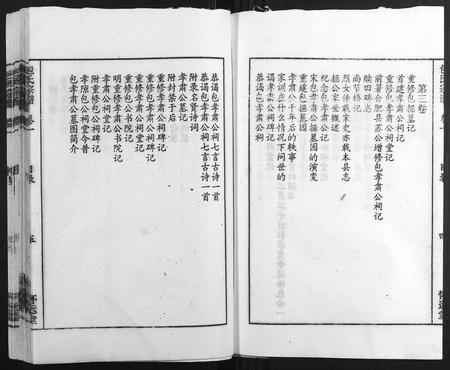 包氏宗谱
卷一
目录
四
怀远堂
第三卷
重修包拯墓记
首建孝肃公祠记
重修孝肃公祠堂记
前署合肥县苏公增修包孝肃公祠记
赎田碑志
尚节桥记
烈女传载家史亦载本县志
拯公家世概述
纪念包孝肃公
宋包孝肃公拯墓园的演变
重建包拯墓园
孝肃公千年后的轶事
家训在什么情况下问世的
谒孝肃包公祠记
恭谒包孝肃公祠
恭谒包孝肃公祠七言古诗一首
恭谒包孝肃公祠七言古诗一首
附录名贤诗词
孝肃公墓记
附封禁于后
重修孝肃公祠记
重修包公祠碑记
重修孝肃公祠堂记
重修包公书院记
明重修孝肃公书院记
附重修包公祠碑记
孝肃包公祠堂今昔
包孝肃公墓图简介
包氏宗谱
卷一
目录
五
怀远堂